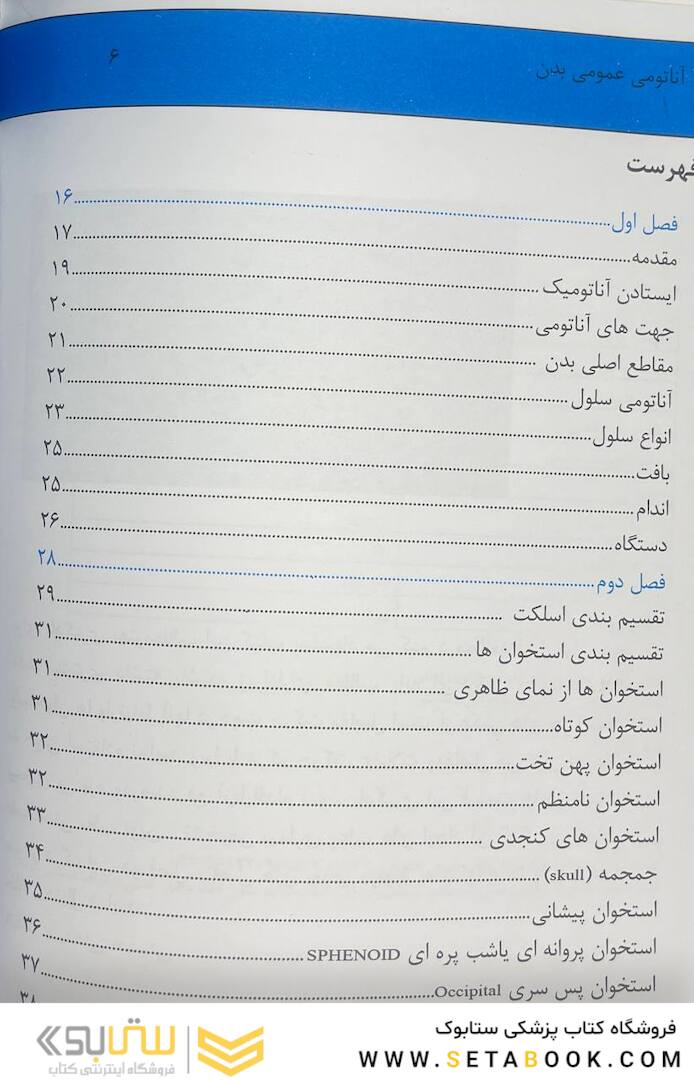 آناتومی عمومی بدن ۶
فهرست
فصل اول ۱۶
مقدمه ۱۷
ایستادن آناتومیک ۱۹
جهت های آناتومی ۲۰
مقاطع اصلی بدن ۲۱
آناتومی سلول ۲۲
انواع سلول ۲۳
بافت ۲۵
اندام ۲۵
دستگاه ۲۶
فصل دوم ۲۸
تقسیم بندی اسلکت ۲۹
تقسیم بندی استخوان ها ۳۱
استخوان ها از نمای ظاهری ۳۱
استخوان کوتاه ۳۱
استخوان پهن تخت ۳۲
استخوان نامنظم ۳۲
استخوان های کنجدی ۳۳
جمجمه (skull) ۳۴
استخوان پیشانی ۳۵
استخوان پروانه ای یاشب پره ای SPHENOID ۳۶
استخوان پس سری Occipital ۳۷
۳۸
فروشگاه کتاب پزشکی ستابوک
WWW.SETABOOK.COM
ستابوک
فروشگاه اینترنتی کتاب